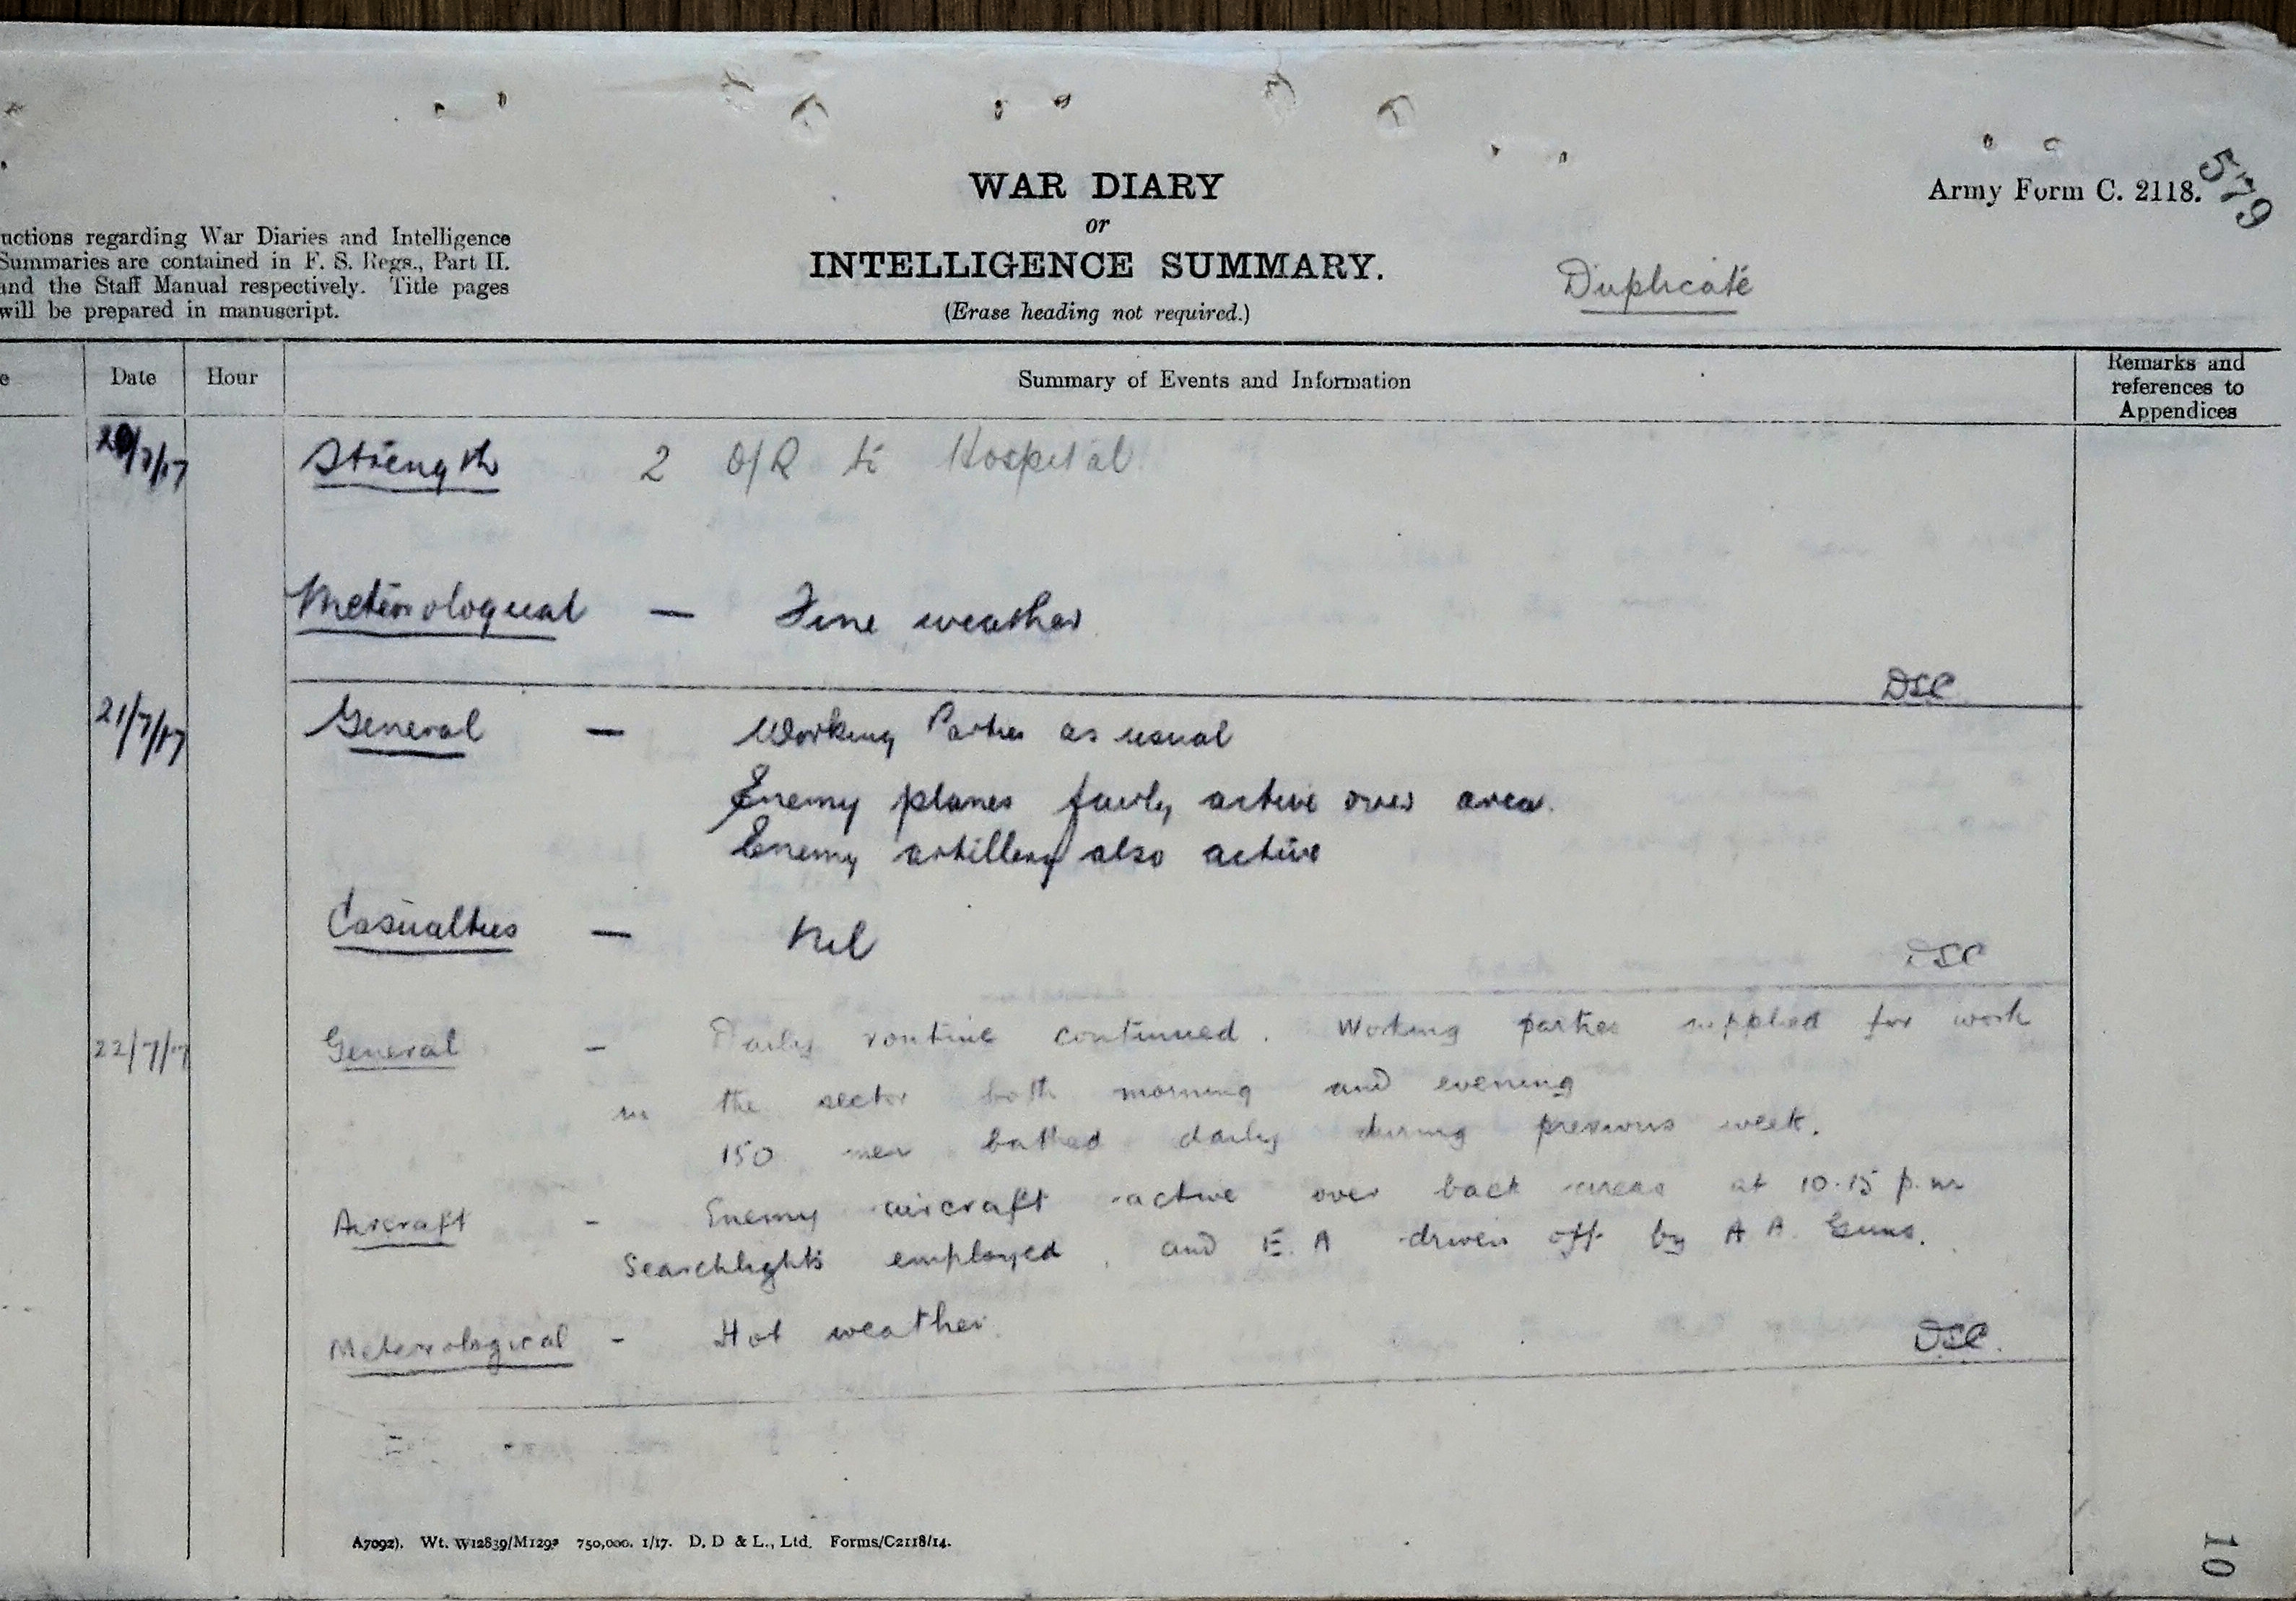 WAR DIARY
or
INTELLIGENCE SUMMARY.
(Erase heading not required.)
Army Form C. 2118.
579
Duplicate
uctions regarding War Diaries and Intelligence
Summaries are contained in F. S. Regs., Part II.
and the Staff Manual respectively. Title pages
will be prepared in manuscript.
e Date Hour Summary of Events and Information Remarks and
references to
Appendices
20/7/17 Strength 2 O/R to Hospital.
Meteorological — Fine weather
DSC
21/7/17 General — Working Parties as usual
Enemy planes fairly active over area.
Enemy artillery also active
Casualties — Nil
DSC
22/7/17 General - Daily routine continued. Working parties supplied for work
in the sector both morning and evening
150 men bathed daily during previous week.
Aircraft - Enemy aircraft active over back areas at 10.15 p.m
Searchlights employed, and E.A driven off by A A. Guns.
Meteorological - Hot weather.
DSC.
A7092). Wt. W12839/M1293 750,000. 1/17. D. D & L., Ltd. Forms/C2118/14.
10